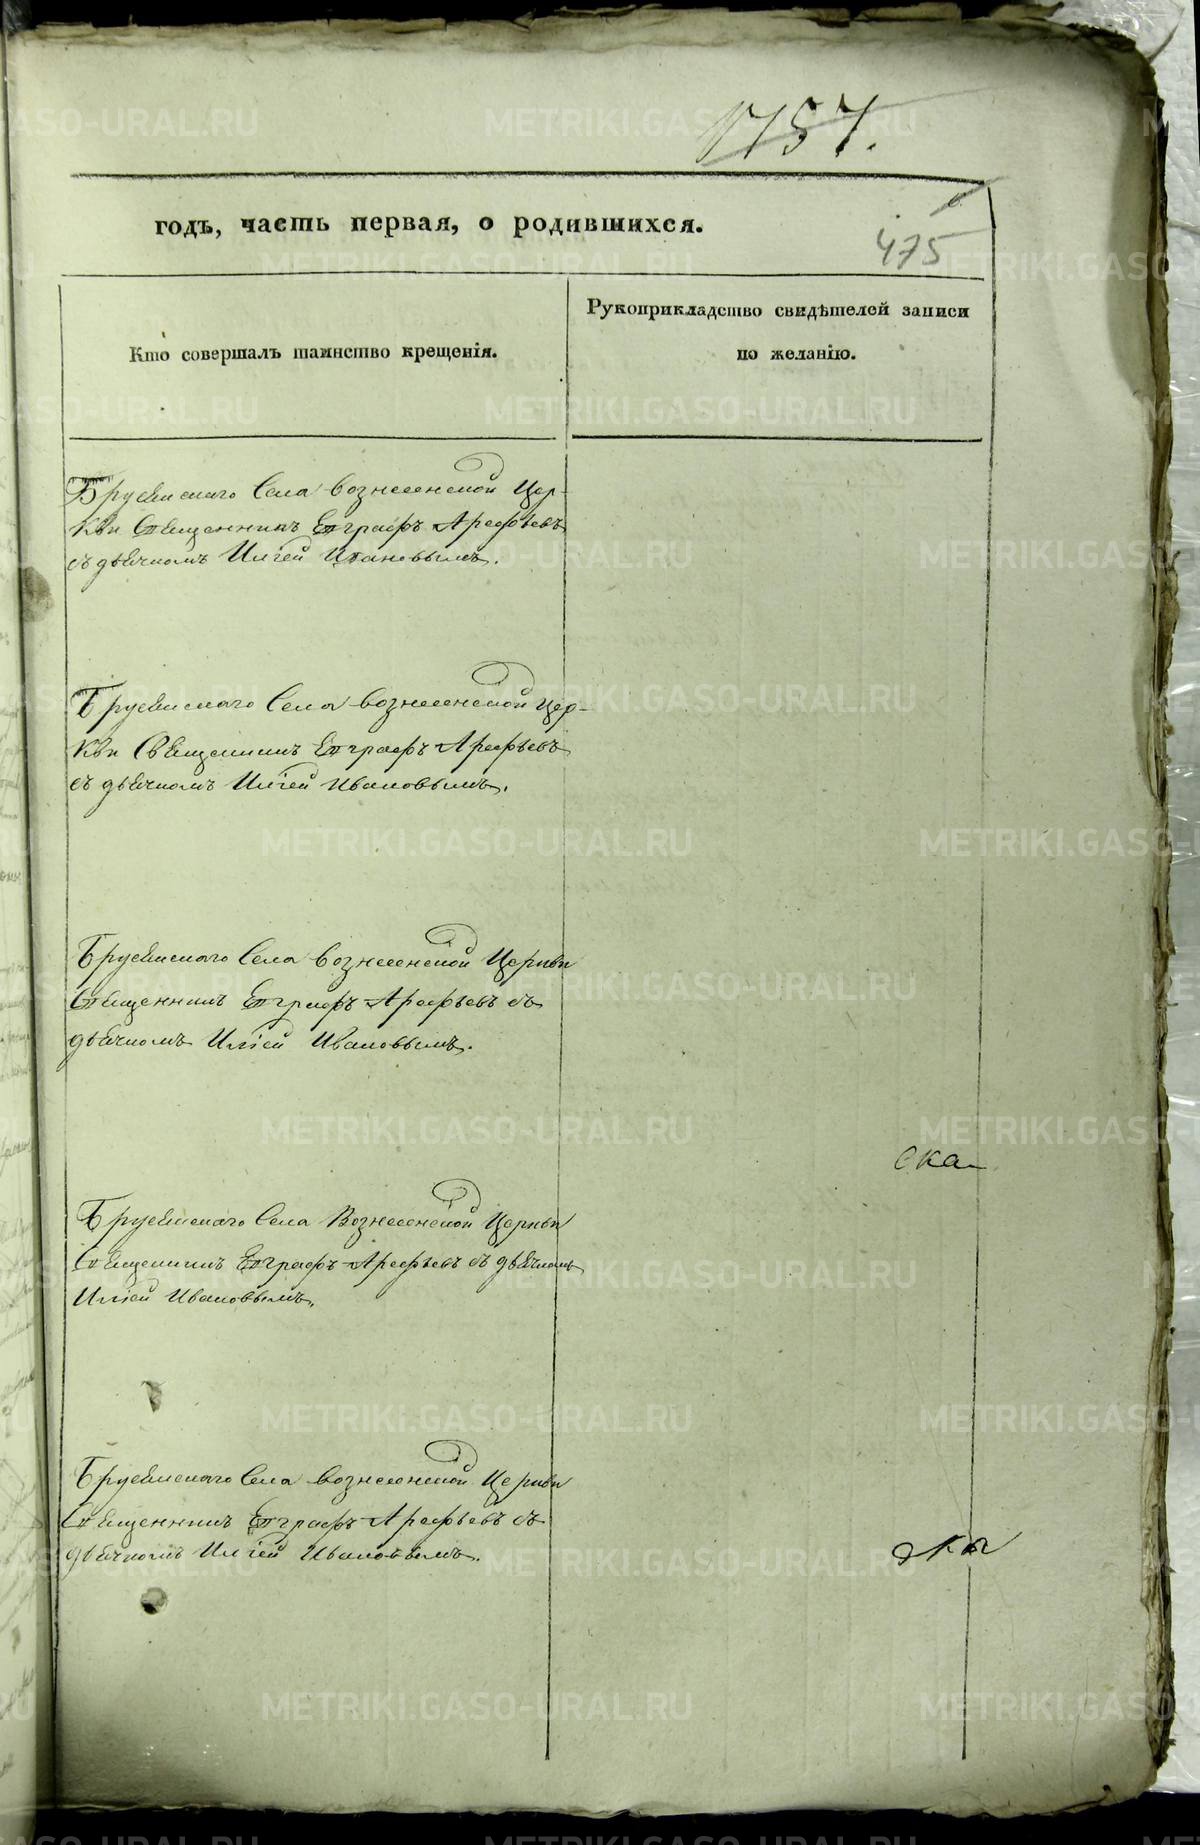 1757.
годъ, часть первая, о родившихся.
475
Кто совершалъ таинство крещенія.
Рукоприкладство свидѣтелей записи
по желанію.
Брусянского Села Вознесенской Цер-
кви Священникъ Евграфъ Арефьевъ
съ дьячкомъ Иліей Ивановымъ.
Брусянского Села Вознесенской Цер-
кви Священникъ Евграфъ Арефьевъ
съ дьячкомъ Иліей Ивановымъ.
Брусянского Села Вознесенской Церкви
Священникъ Евграфъ Арефьевъ съ
дьячкомъ Иліей Ивановымъ.
ска
Брусянского Села Вознесенской Церкви
Священникъ Евграфъ Арефьевъ съ дьячкомъ
Иліей Ивановымъ.
Брусянского Села Вознесенской Церкви
Священникъ Евграфъ Арефьевъ съ
дьячкомъ Иліей Ивановымъ.
METRIKI.GASO-URAL.RU